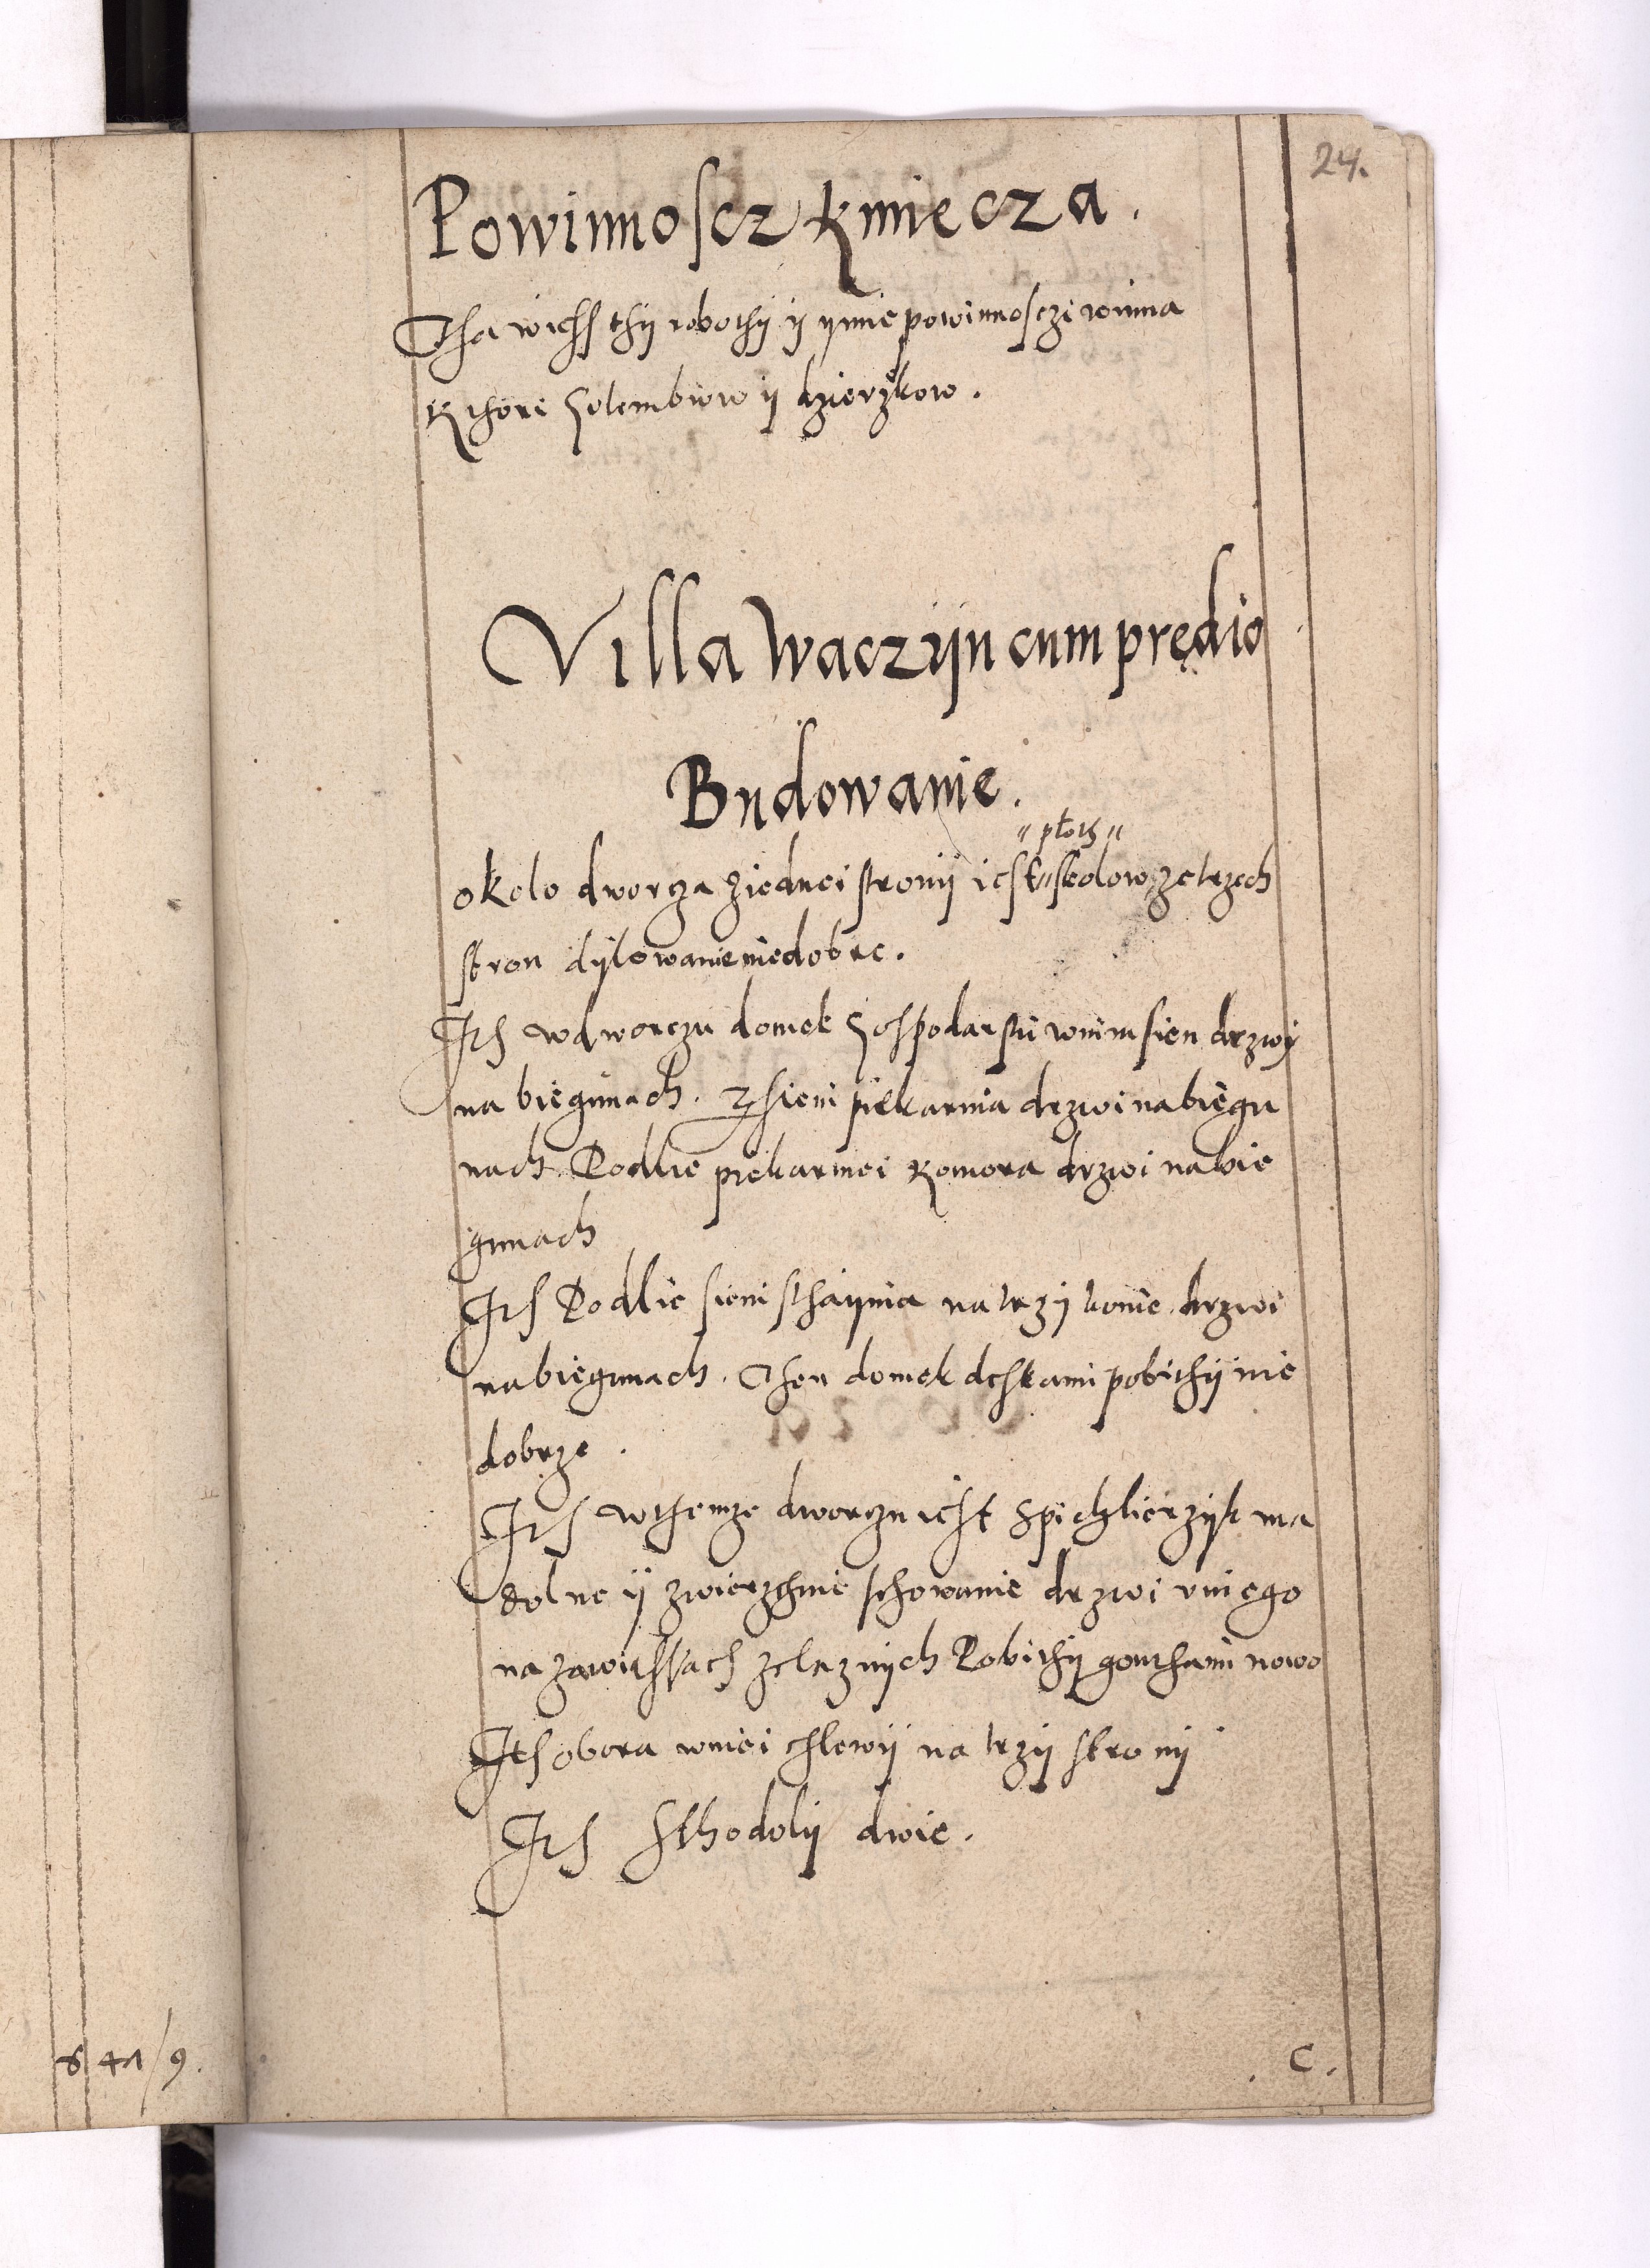 24.
Powinnoscz kmiecza.
Tha wiess thy robothy y ynne powinnosczi winna
kthore Golembiow y dzierzkow.
Villa Waczyn cum prędio
Budowanie.
"płoth"
okolo dworcza ziednei strony iest "stolow, zetrzech
stron dylowanie niedobre.
Its wdworczu domek Gospodarski wnim sien drzwy
na biegunach. Z sieni piekarnia drzwi na biegu
nach Podlie piekarniei komora drzwi nabie
gunach
Its Podlie sieni sthaynia na trzy konie drzwi
na biegunach. Then domek dchkami pobithy nie
dobrze.
Its wthemze dworczu iest Spichlierzyk ma
dolne y zwierzchnie schowanie drzwi v niego
na zawiassach zelaznych Pobithy gonthami nowo
Its obora wniei chlewy na trzy strony
Its sthodoly dwie.
C.
841/9.